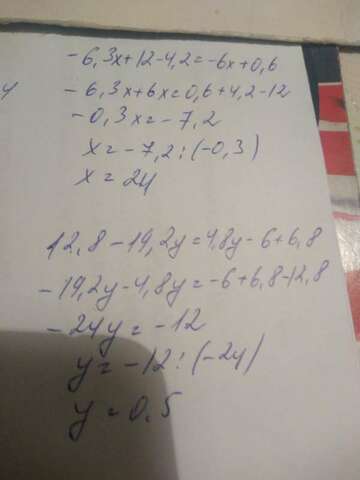 -6,3x+12-4,2=-6x+0,6
-6,3x+6x=0,6+4,2-12
-0,3x=-7,2
x=-7,2:(-0,3)
x=24
12,8-19,2y=4,8y-6+6,8
-19,2y-4,8y=-6+6,8-12,8
-24y=-12
y=-12:(-24)
y=0,5